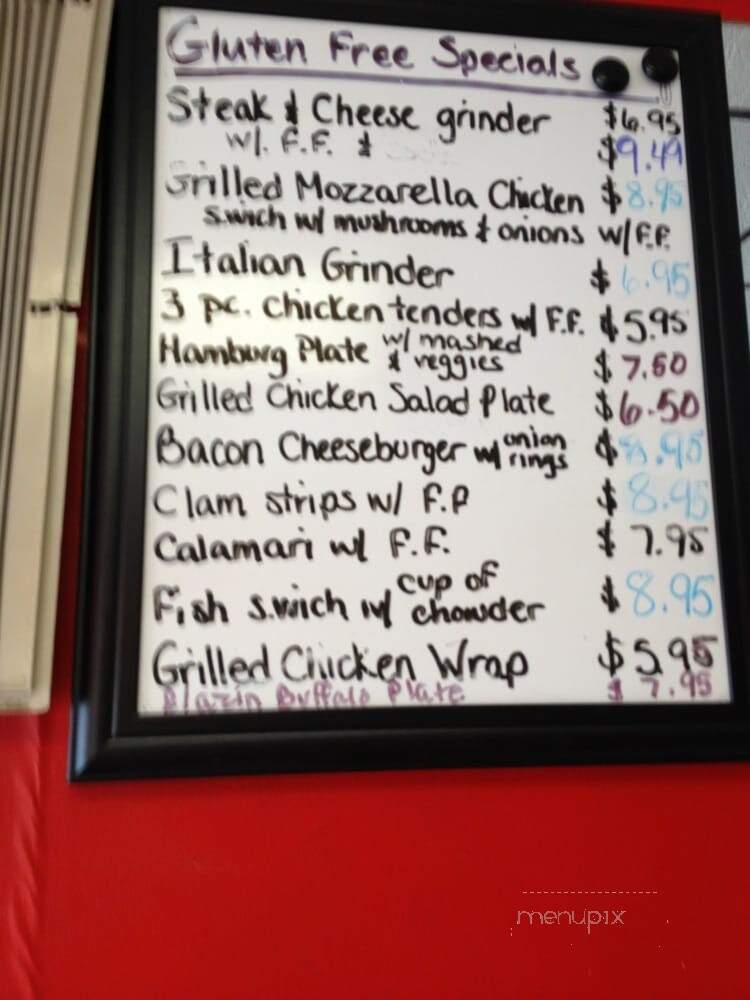 Gluten Free Specials
Steak & Cheese grinder $6.95
w/. F.F. & $9.49
Grilled Mozzarella Chicken $8.95
s.wich w/ mushrooms & onions w/F.F.
Italian Grinder $6.95
3 pc. chicken tenders w/ F.F. $5.95
Hamburg Plate w/ mashed & veggies $7.50
Grilled Chicken Salad Plate $6.50
Bacon Cheeseburger w/ onion rings $8.95
Clam strips w/ F.F $8.95
Calamari w/ F.F. $7.95
Fish s.wich w/ cup of chowder $8.95
Grilled Chicken Wrap $5.95
Blazin Buffalo Plate $7.95
menupix